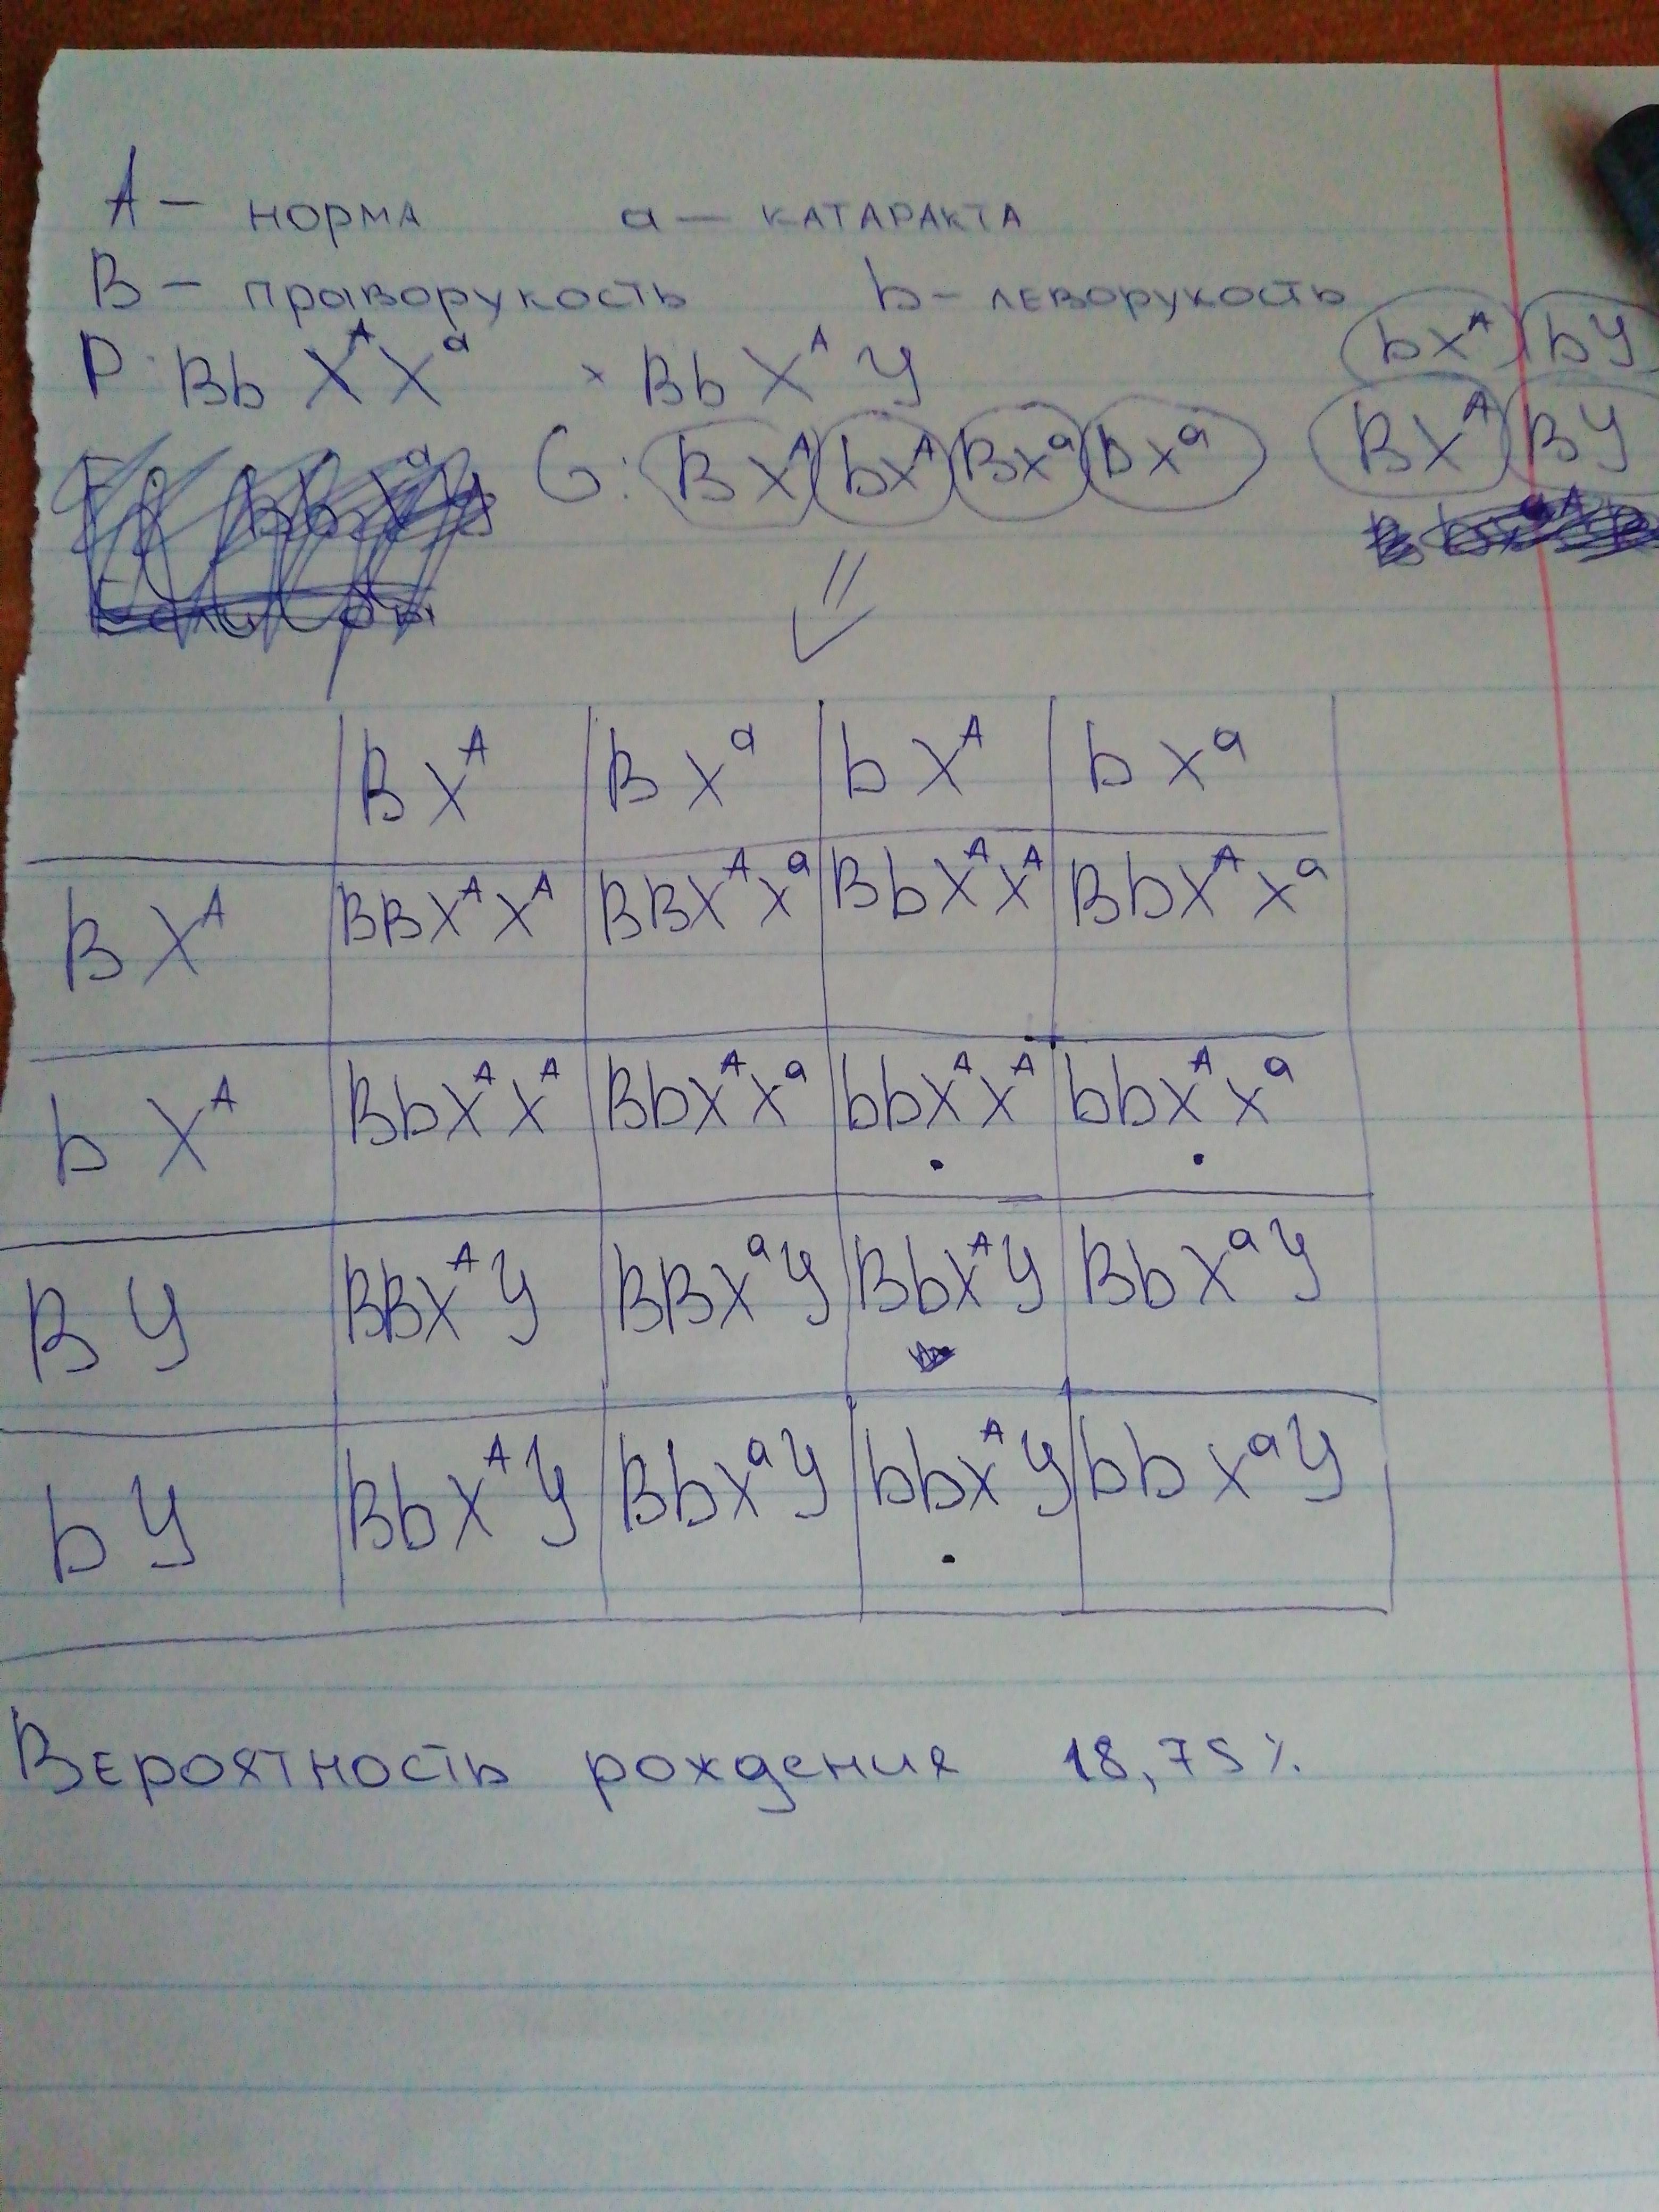 A – норма a – катаракта
B – праворукость b – леворукость
bX^A bY
P: Bb X^A X^a × Bb X^A Y
G: BX^A bX^A BX^a bX^a BX^A BY
BX^A BX^a bX^A bX^a
BX^A BBX^AX^A BBX^AX^a BbX^AX^A BbX^AX^a
bX^A BbX^AX^A BbX^AX^a bbX^AX^A bbX^AX^a
BY BBX^AY BBX^aY BbX^AY BbX^aY
bY BbX^AY BbX^aY bbX^AY bbX^aY
Вероятность рождения 18,75%